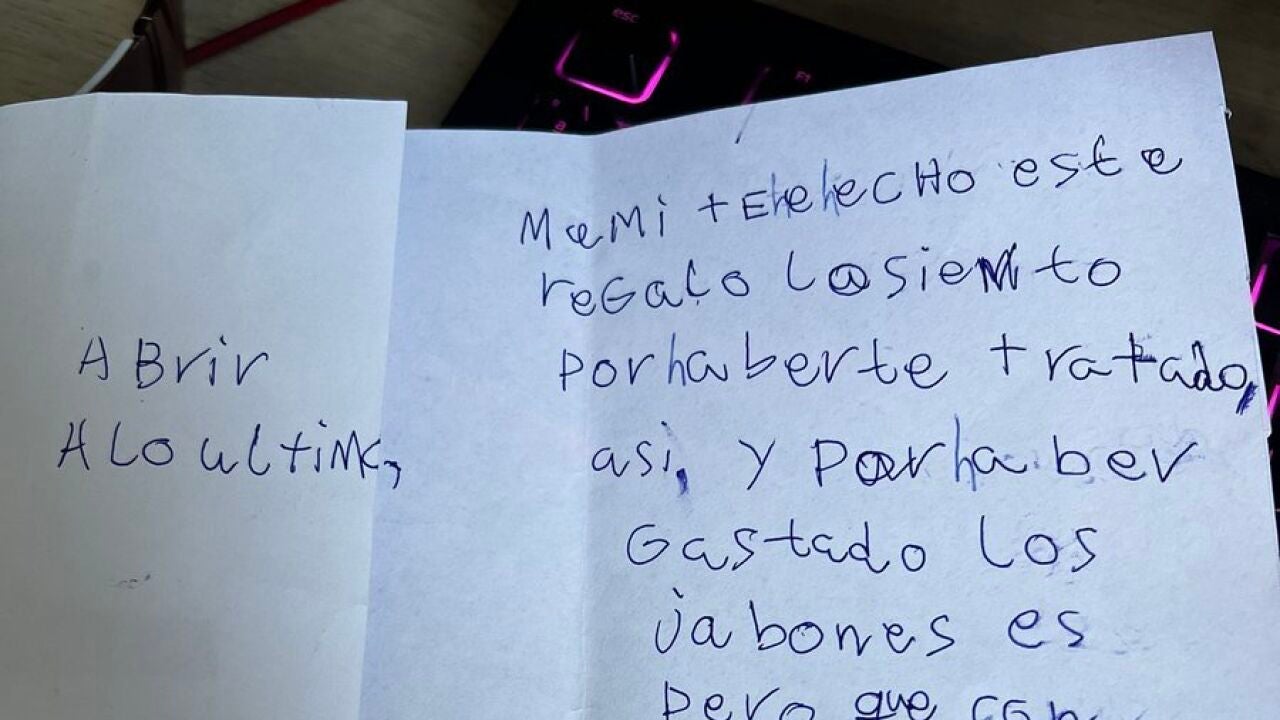 ABrir
ALO ULtiM,
MaMi +EhehecHo este
reGaLo LosieNto
Porhaberte tratado,
asi, y Porhaber
Gastado los
jabones es
Pero que con
esc
F1